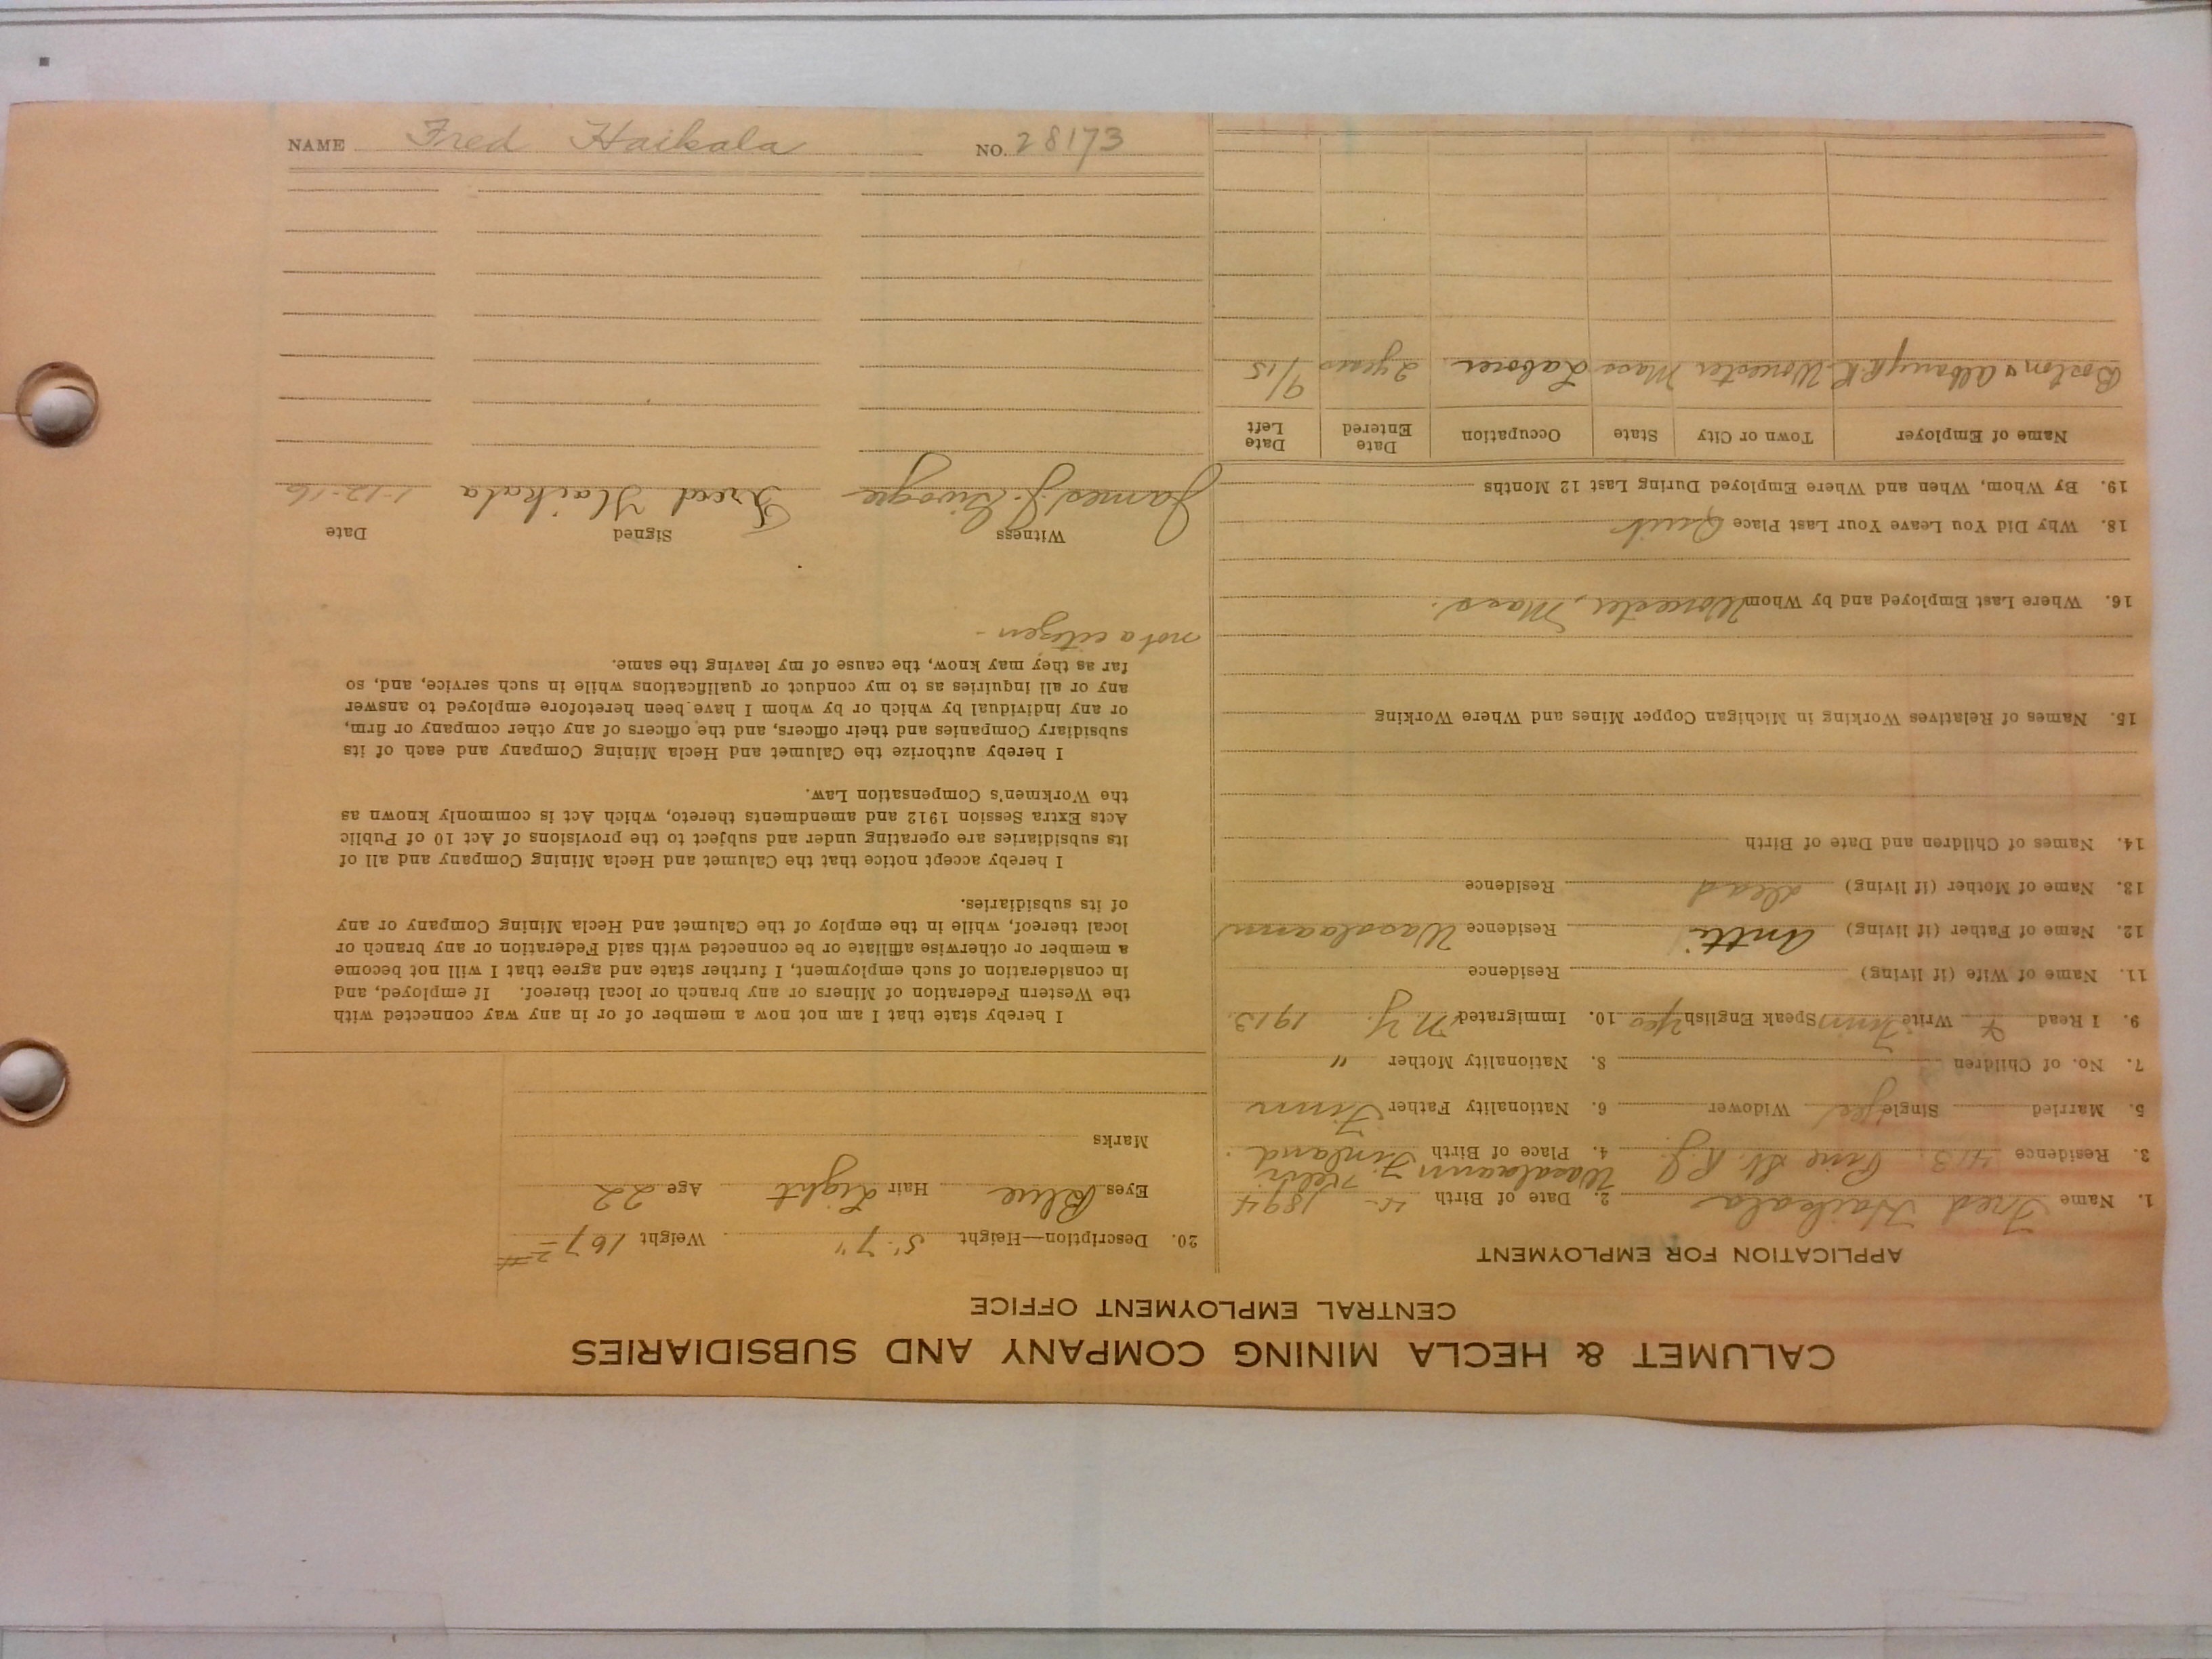 NAME Fred Haikala NO. 28173
CALUMET & HECLA MINING COMPANY AND SUBSIDIARIES
CENTRAL EMPLOYMENT OFFICE
APPLICATION FOR EMPLOYMENT
1. Name Fred Haikala 2. Date of Birth 1894
3. Residence 413 Pine St. R.J. 4. Place of Birth Finland.
5. Married Single yes Widower 6. Nationality Father Finn
7. No. of Children 8. Nationality Mother "
9. I Read Write Finn Speak English yes 10. Immigrated N.Y. 1913.
11. Name of Wife (if living) Residence
12. Name of Father (if living) Antti Residence
13. Name of Mother (if living) dead Residence
14. Names of Children and Date of Birth
15. Names of Relatives Working in Michigan Copper Mines and Where Working
16. Where Last Employed and by Whom Worcester, Mass.
18. Why Did You Leave Your Last Place Quit
19. By Whom, When and Where Employed During Last 12 Months
Name of Employer Town or City State Occupation Date Entered Date Left
Boston & Albany R.R. Worcester Mass Laborer 2 years 9/15
20. Description—Height 5' 7" Weight 167
Eyes Blue Hair Light Age 22
Marks
I hereby state that I am not now a member of or in any way connected with
the Western Federation of Miners or any branch or local thereof. If employed, and
in consideration of such employment, I further state and agree that I will not become
a member or otherwise affiliate or be connected with said Federation or any branch or
local thereof, while in the employ of the Calumet and Hecla Mining Company or any
of its subsidiaries.
I hereby accept notice that the Calumet and Hecla Mining Company and all of
its subsidiaries are operating under and subject to the provisions of Act 10 of Public
Acts Extra Session 1912 and amendments thereto, which Act is commonly known as
the Workmen's Compensation Law.
I hereby authorize the Calumet and Hecla Mining Company and each of its
subsidiary Companies and their officers, and the officers of any other company or firm,
or any individual by which or by whom I have been heretofore employed to answer
any or all inquiries as to my conduct or qualifications while in such service, and, so
far as they may know, the cause of my leaving the same.
not a citizen -
Witness Signed Date
James J. Fred Haikala 1-12-16